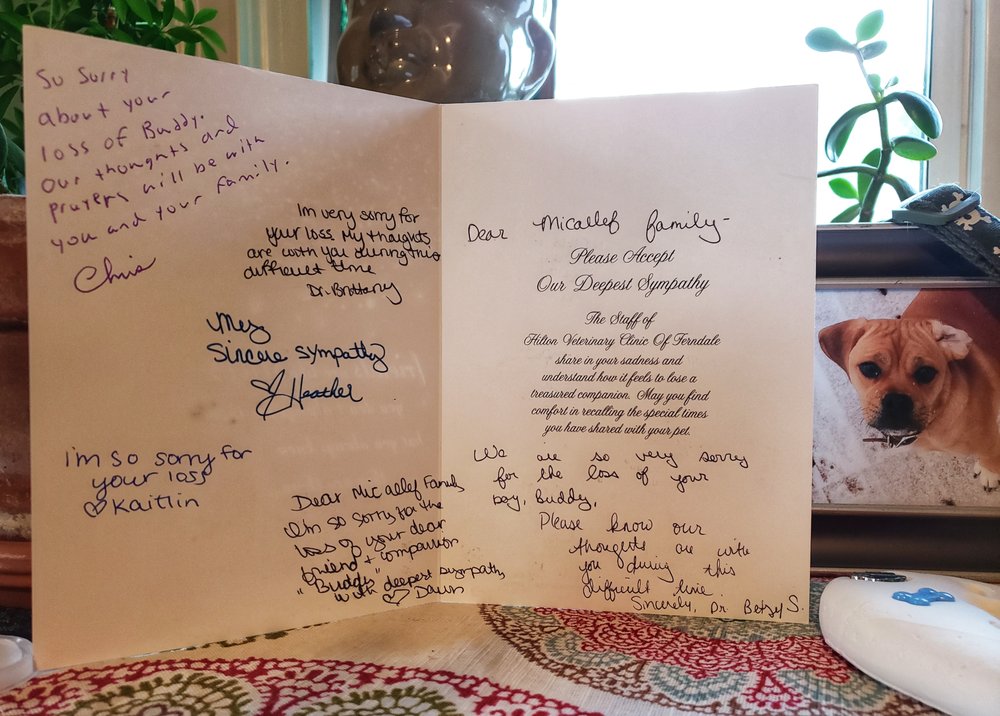 So Sorry
about your
loss of Buddy.
Our thoughts and
prayers will be with
you and your family.
Chris
I'm very sorry for
your loss. My thoughts
are with you during this
difficult time
Dr. Brittany
My
Sincere sympathy
Heather
I'm so sorry for
your loss
Kaitlin
Dear Micallef Family
I'm so sorry for the
loss of your dear
friend + companion
"Buddy"
with deepest sympathy,
Dawn
Dear Micallef family-
Please Accept
Our Deepest Sympathy
The Staff of
Hilton Veterinary Clinic Of Ferndale
share in your sadness and
understand how it feels to lose a
treasured companion. May you find
comfort in recalling the special times
you have shared with your pet.
We are so very sorry
for the loss of your
boy, Buddy.
Please know our
thoughts are with
you during this
difficult time.
Sincerely, Dr. Betsy S.